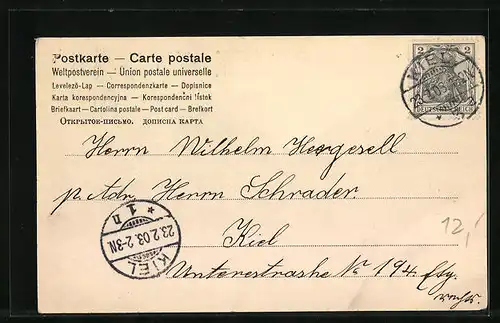 Postkarte — Carte postale
Weltpostverein — Union postale universelle
Levelező-Lap — Correspondenzkarte — Dopisnice
Karta korespondencyjna — Korespondenční lístek
Briefkaart — Cartolina postale — Post card — Brefkort
Открытое-письмо. ДОПИСНА КАРТА
2 2
KIEL
DEUTSCHES REICH
Herrn Wilhelm Hergesell
p. Adr. Herrn Schrader.
Kiel
Unterestrashe No 194. Etg.
rechts.
KIEL
23.2.03. 2-3N.
* 1 n
12,